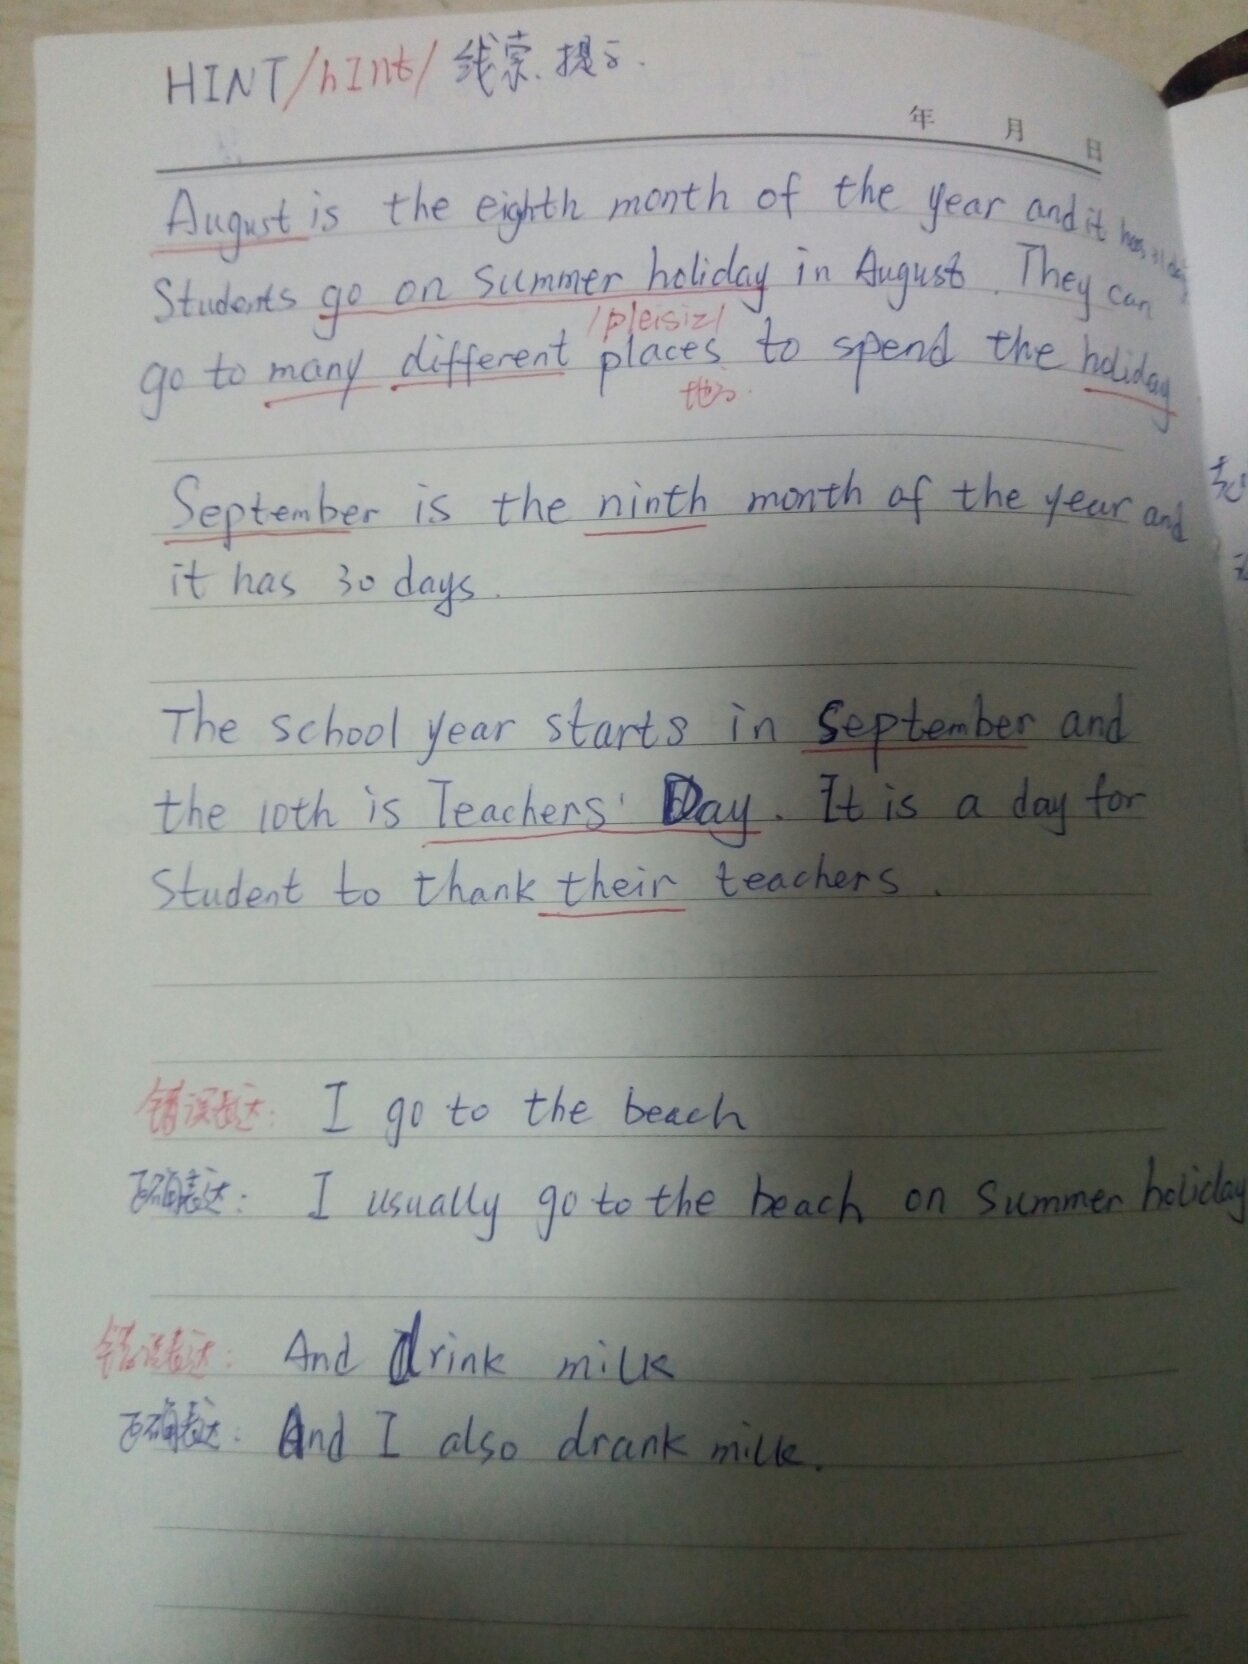 HINT /hInt/ 线索、提示.
年 月 日
August is the eighth month of the year and it has 31 days
Students go on summer holiday in August. They can
/pleisiz/
go to many different places to spend the holiday
地方
September is the ninth month of the year and
it has 30 days.
The school year starts in September and
the 10th is Teachers' Day. It is a day for
Student to thank their teachers.
错误表达: I go to the beach
正确表达: I usually go to the beach on summer holiday
错误表达: And drink milk
正确表达: And I also drank milk.